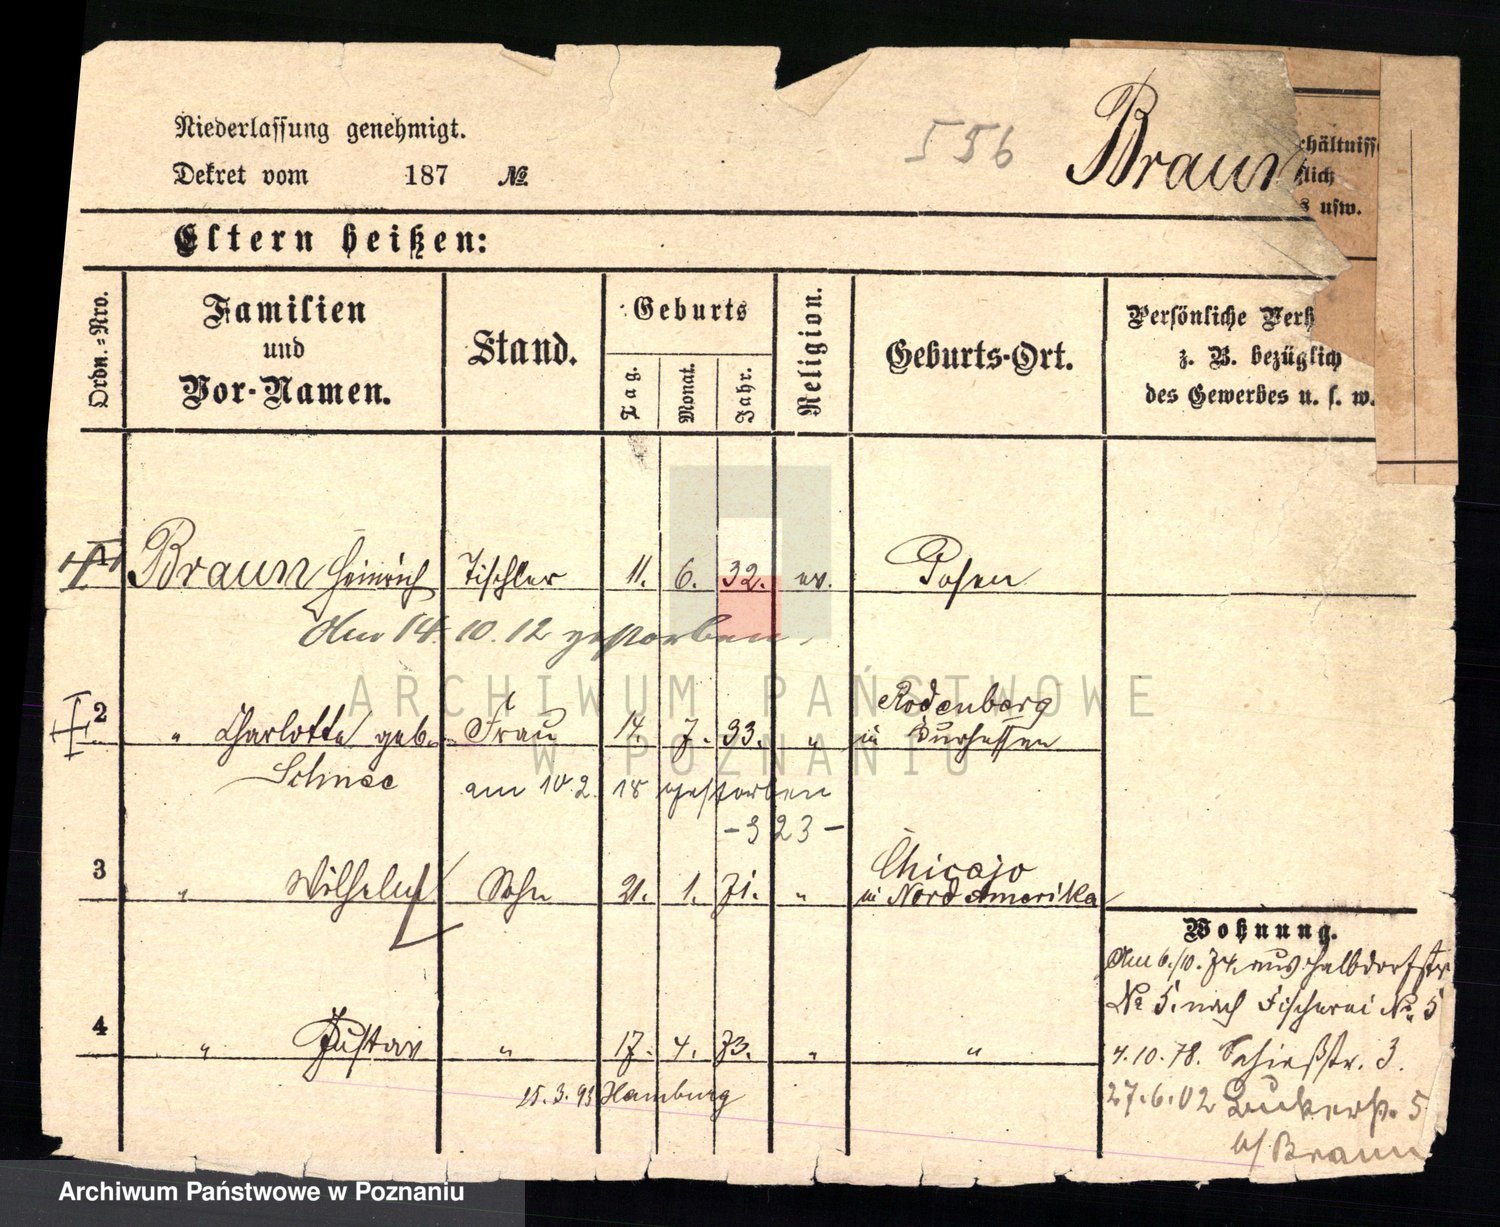 Niederlassung genehmigt.
556
Braun
Dekret vom 187 №
hältnisse
lich
usw.
Eltern heißen:
Ordn.-Nro.
Familien und Vor-Namen.
Stand.
Geburts
Tag.
Monat.
Jahr.
Religion.
Geburts-Ort.
Persönliche Verh
z. B. bezüglich
des Gewerbes u. s. w.
1 Braun Heinrich Tischler 11. 6. 32. ev. Posen
Am 14. 10. 12 gestorben,
2 " Charlotte geb. Schnee Frau 14. 7. 33. " Rodenberg in Kurhessen
am 10.2. 18 gestorben
- 323 -
3 " Wilhelm Sohn 21. 1. 71. " Chicajo in Nord Amerika
4 " Gustav " 17. 4. 73. " "
15. 3. 93 Hamburg
Wohnung.
Am 6./10. 74. aus Halbdorfstr
№ 5. nach Fischerei № 5
4. 10. 78. Schießstr. 3.
27. 6. 02 5
b/ Braun
ARCHIWUM PAŃSTWOWE
W POZNANIU
Archiwum Państwowe w Poznaniu